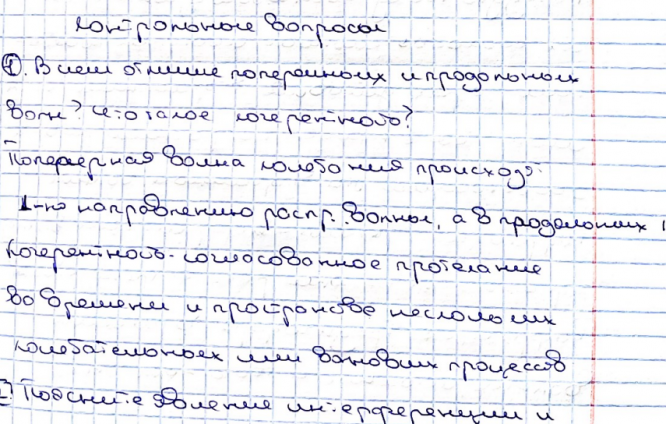 Контрольные вопросы
1. В чем отличие поперечных и продольных
волн? Что такое когерентность?
Поперечная волна колебания происход.
⊥-но направлению распр. волны, а в продольных |
Когерентность - согласованное протекание
во времени и пространстве нескольких
колебательных или волновых процессов
2 Поясните явление интерференции и